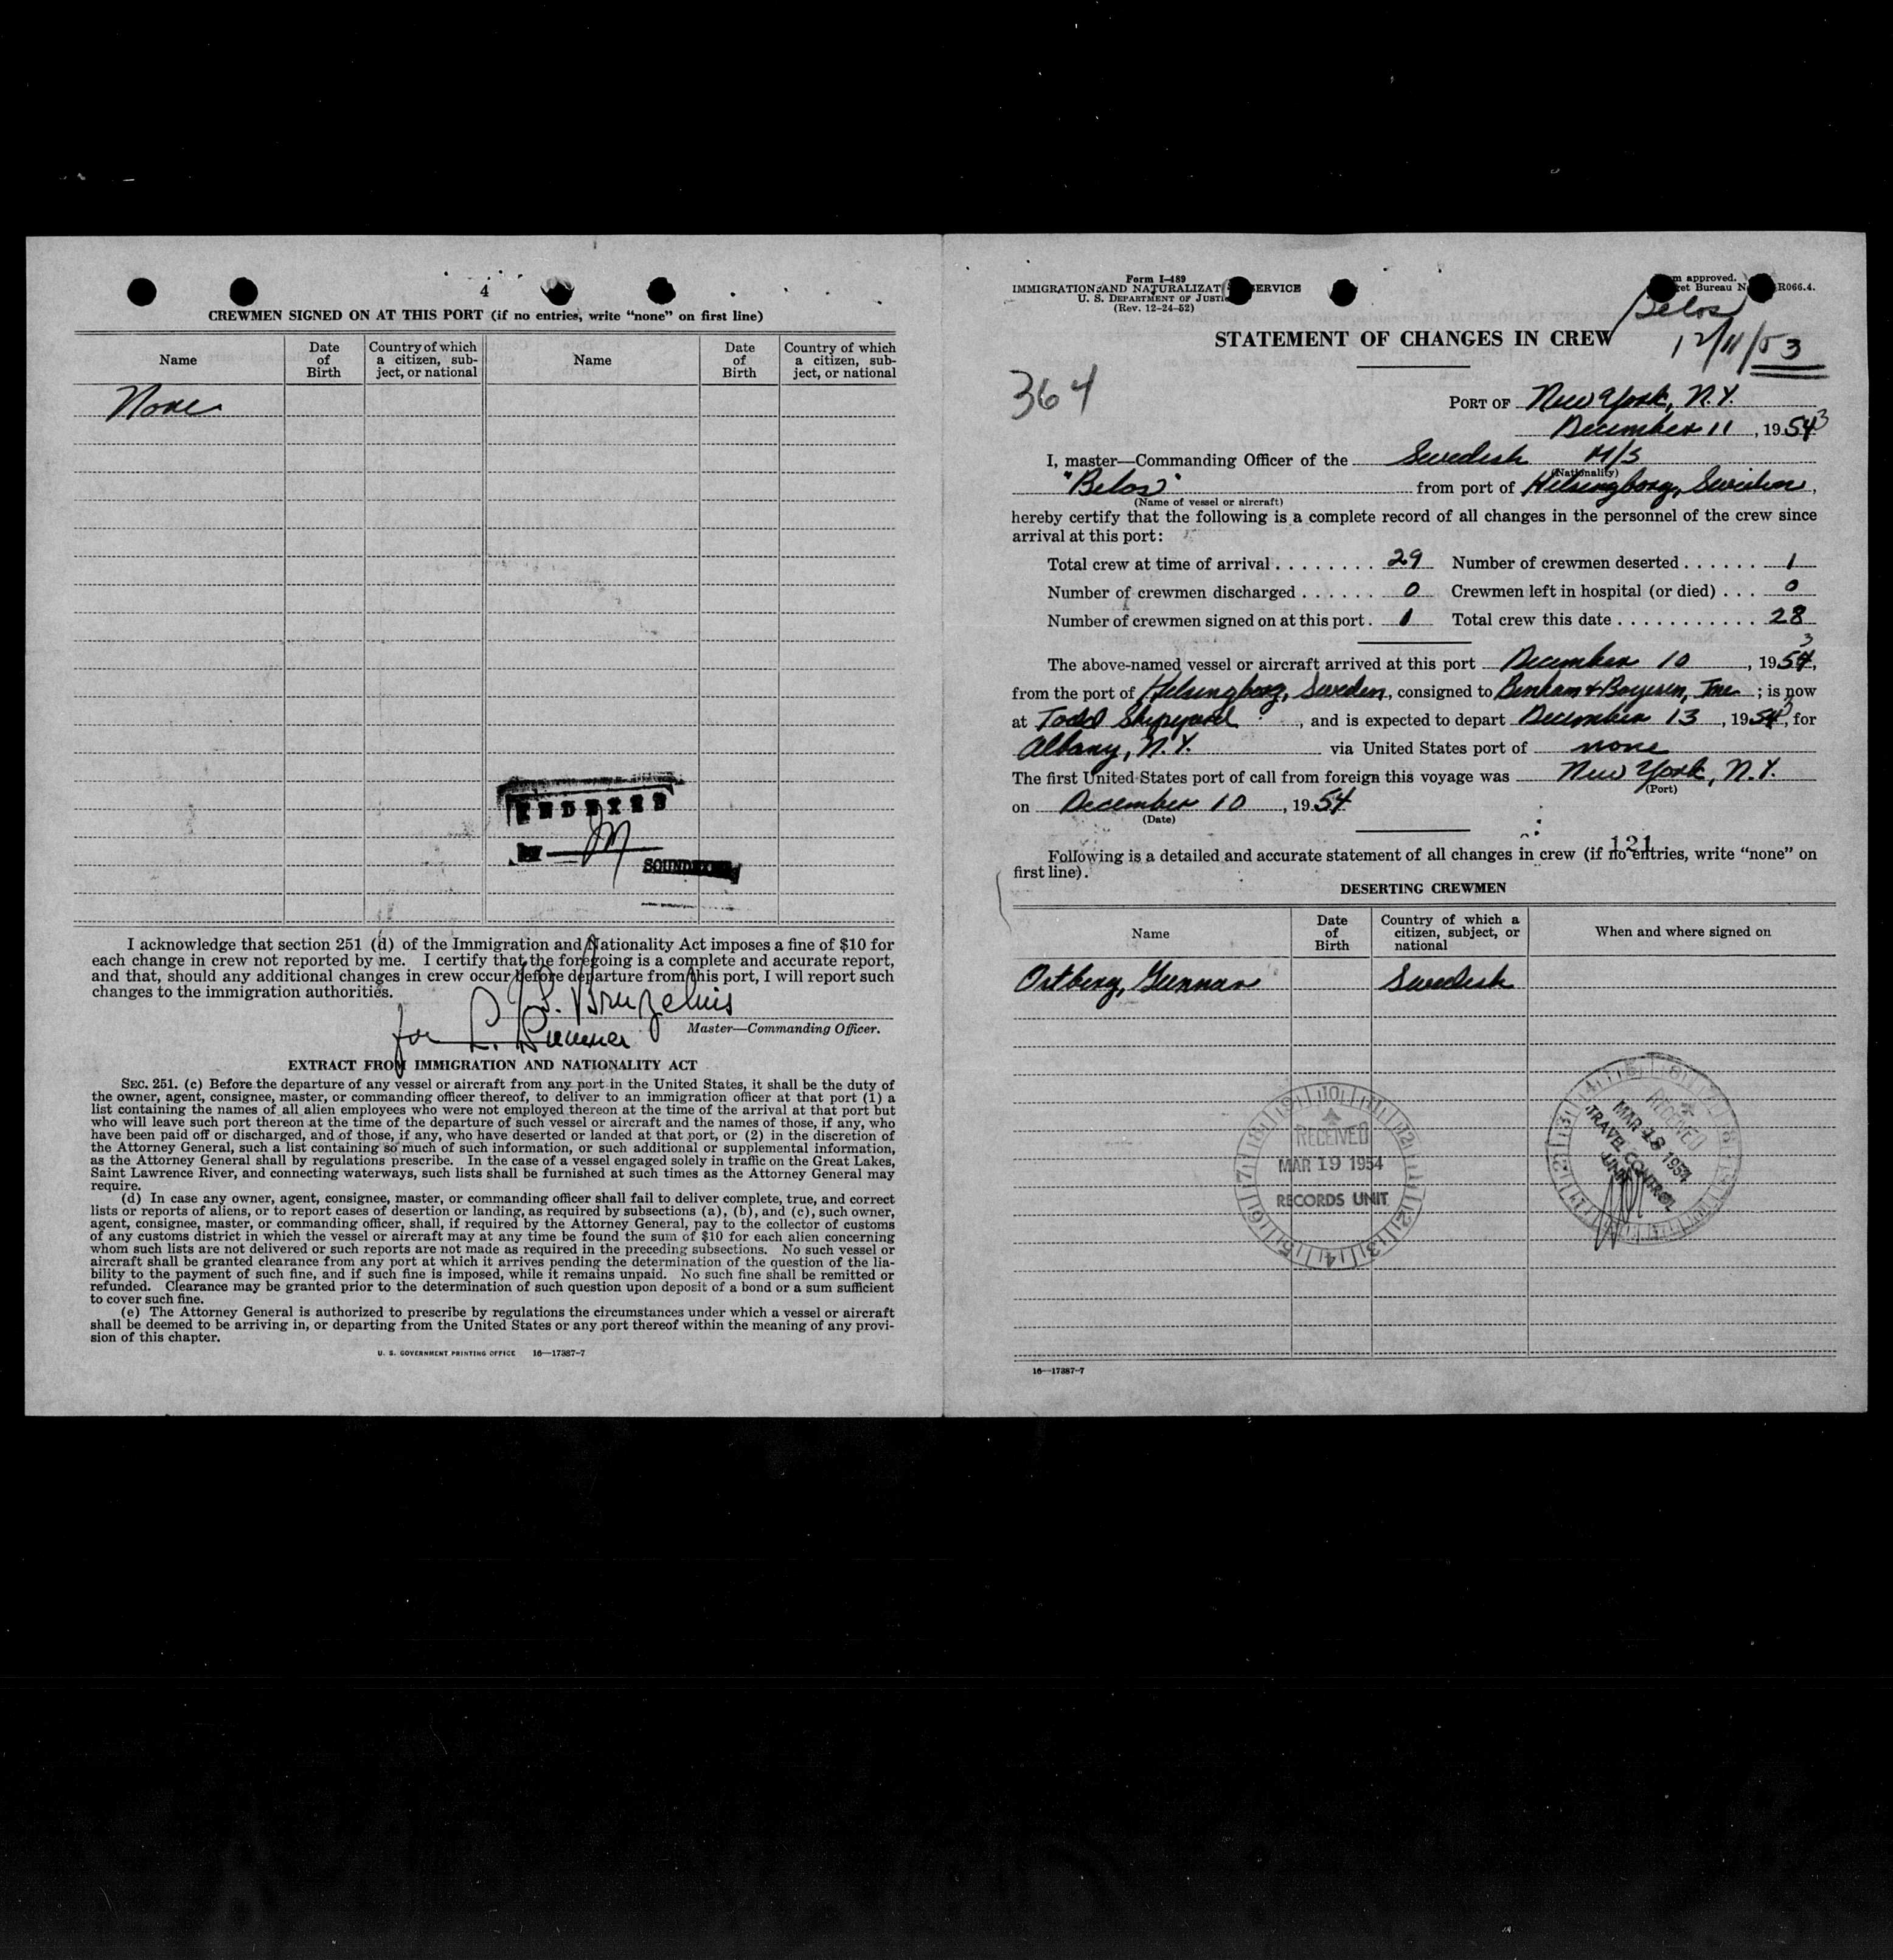 4
CREWMEN SIGNED ON AT THIS PORT (if no entries, write “none” on first line)
Name
Date of Birth
Country of which a citizen, sub-ject, or national
Name
Date of Birth
Country of which a citizen, sub-ject, or national
None
INDEXED
BY M
SOUNDEXED
I acknowledge that section 251 (d) of the Immigration and Nationality Act imposes a fine of $10 for
each change in crew not reported by me. I certify that the foregoing is a complete and accurate report,
and that, should any additional changes in crew occur before departure from this port, I will report such
changes to the immigration authorities.
Bruzelius
for L.
Master—Commanding Officer.
EXTRACT FROM IMMIGRATION AND NATIONALITY ACT
SEC. 251. (c) Before the departure of any vessel or aircraft from any port in the United States, it shall be the duty of
the owner, agent, consignee, master, or commanding officer thereof, to deliver to an immigration officer at that port (1) a
list containing the names of all alien employees who were not employed thereon at the time of the arrival at that port but
who will leave such port thereon at the time of the departure of such vessel or aircraft and the names of those, if any, who
have been paid off or discharged, and of those, if any, who have deserted or landed at that port, or (2) in the discretion of
the Attorney General, such a list containing so much of such information, or such additional or supplemental information,
as the Attorney General shall by regulations prescribe. In the case of a vessel engaged solely in traffic on the Great Lakes,
Saint Lawrence River, and connecting waterways, such lists shall be furnished at such times as the Attorney General may
require.
(d) In case any owner, agent, consignee, master, or commanding officer shall fail to deliver complete, true, and correct
lists or reports of aliens, or to report cases of desertion or landing, as required by subsections (a), (b), and (c), such owner,
agent, consignee, master, or commanding officer, shall, if required by the Attorney General, pay to the collector of customs
of any customs district in which the vessel or aircraft may at any time be found the sum of $10 for each alien concerning
whom such lists are not delivered or such reports are not made as required in the preceding subsections. No such vessel or
aircraft shall be granted clearance from any port at which it arrives pending the determination of the question of the lia-
bility to the payment of such fine, and if such fine is imposed, while it remains unpaid. No such fine shall be remitted or
refunded. Clearance may be granted prior to the determination of such question upon deposit of a bond or a sum sufficient
to cover such fine.
(e) The Attorney General is authorized to prescribe by regulations the circumstances under which a vessel or aircraft
shall be deemed to be arriving in, or departing from the United States or any port thereof within the meaning of any provi-
sion of this chapter.
U. S. GOVERNMENT PRINTING OFFICE 16—17387-7
Form I-489
IMMIGRATION AND NATURALIZAT SERVICE
U. S. DEPARTMENT OF JUSTI
(Rev. 12-24-52)
m approved.
et Bureau N R066.4.
Belos
12/11/53
STATEMENT OF CHANGES IN CREW
364
PORT OF New York, N.Y.
December 11, 1954 3
I, master—Commanding Officer of the Swedish M/S
(Nationality)
"Belos" from port of Helsingborg, Sweden,
(Name of vessel or aircraft)
hereby certify that the following is a complete record of all changes in the personnel of the crew since
arrival at this port:
Total crew at time of arrival . . . . . . . . 29 Number of crewmen deserted . . . . . . 1
Number of crewmen discharged . . . . . . 0 Crewmen left in hospital (or died) . . . 0
Number of crewmen signed on at this port . 1 Total crew this date . . . . . . . . . . . 28
The above-named vessel or aircraft arrived at this port December 10, 1954 3,
from the port of Helsingborg, Sweden, consigned to Benham & Boyesen, Inc; is now
at Todd Shipyard, and is expected to depart December 13, 1954 3, for
Albany, N.Y. via United States port of none
The first United States port of call from foreign this voyage was New York, N.Y.
(Port)
on December 10, 1954
(Date)
121
Following is a detailed and accurate statement of all changes in crew (if no entries, write “none” on
first line).
DESERTING CREWMEN
Name
Date of Birth
Country of which a citizen, subject, or national
When and where signed on
Ostberg, Gunnar Swedish
RECEIVED
MAR 19 1954
RECORDS UNIT
RECEIVED
MAR 18 1954
TRAVEL CONTROL
UNIT
16—17387-7